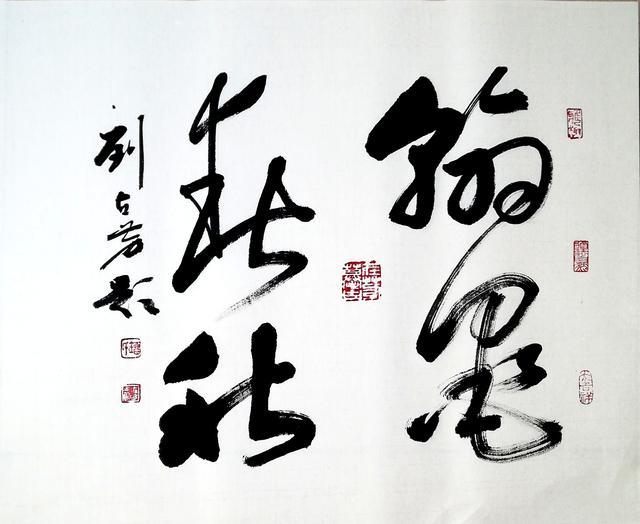 翰墨
春秋
刘占芳题